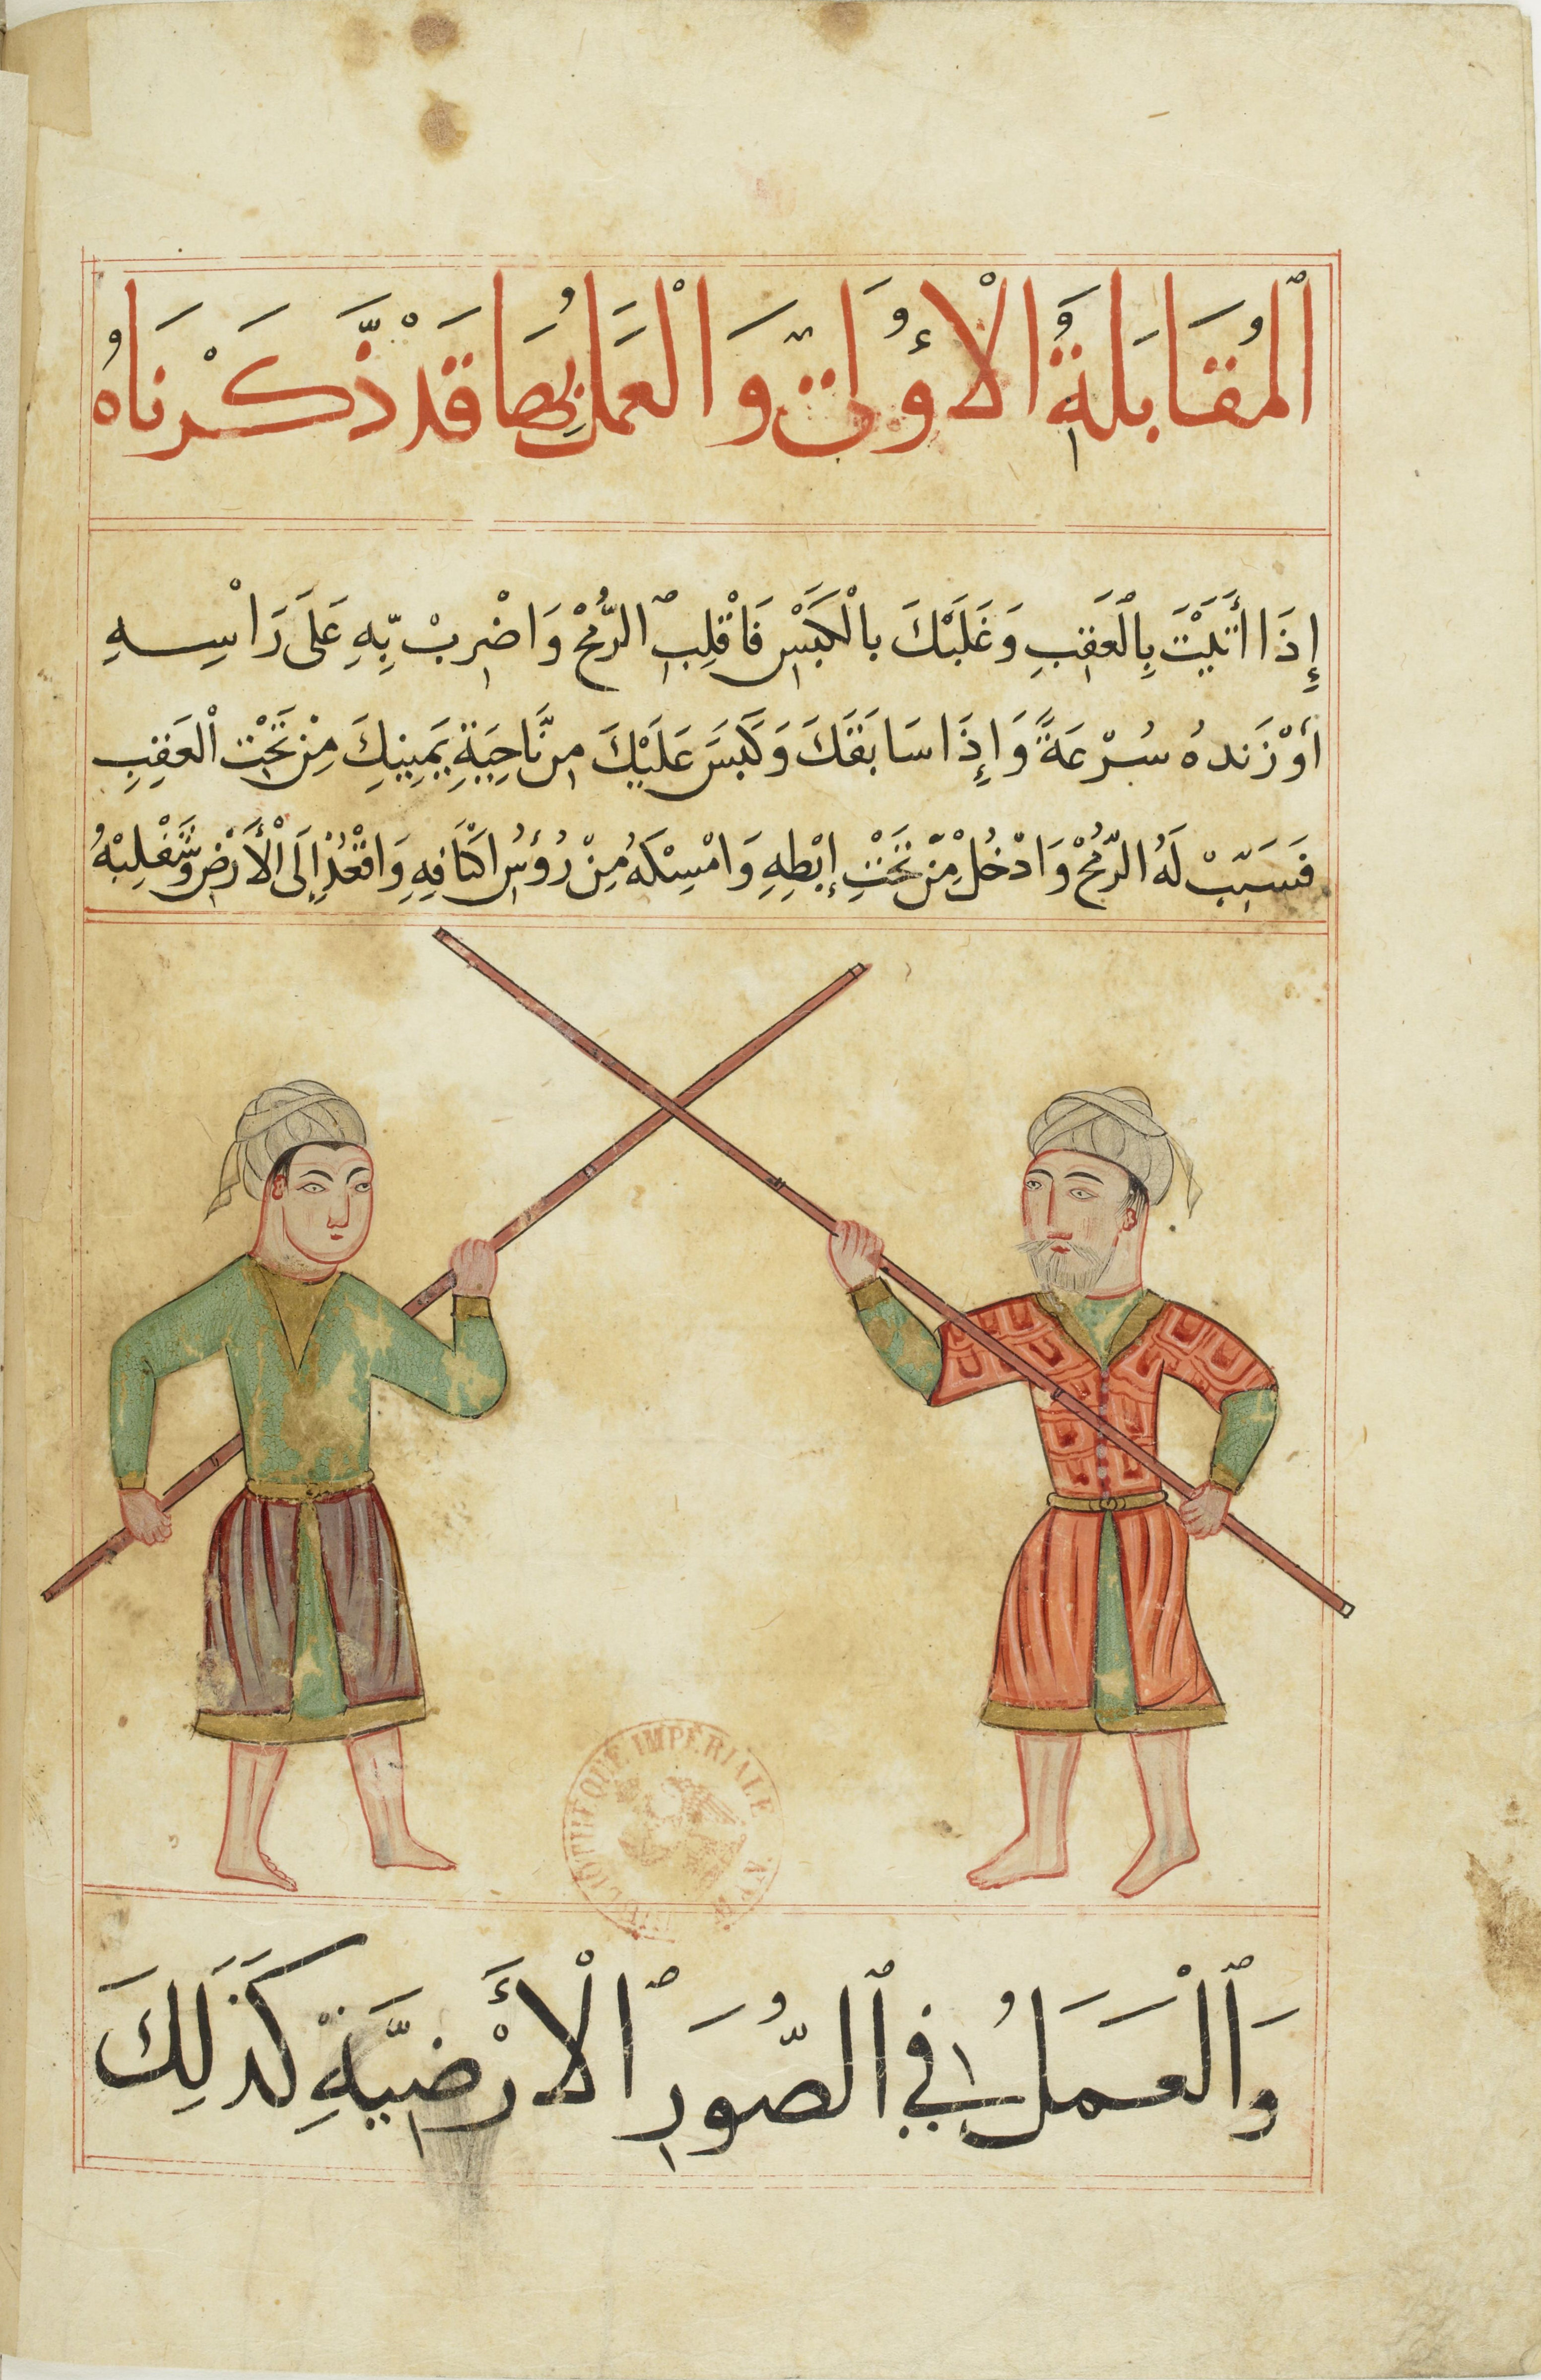 ٱلْمُقَابَلَةُ الْأُوْلَتْ وَالْعَمَلُ بِهَا قَدْ ذَّكَرْنَاهُ
إِذَا أَتَيْتَ بِٱلْعَقِبِ وَغَلَبَكَ بِالْكَبْسِ فَاقْلِبِ ٱلرُّمْحْ وَاضْرِبْ بِّهِ عَلَى رَاْسِهِ
أَوْ زَندهُ سُرْعَةً وَإِذَا سَابَقَكَ وَكَبَسَ عَلَيْكَ مِن نَّاحِيَةِ يَمِينِكَ مِنْ تَحْتِ اْلعَقِبِ
فَسَيِّبْ لَهُ الرُّمْحْ وَادْخُلْ مِّنْ تَحْتِ إِبْطِهِ وَامْسِكَهُ مِنْ رُؤُسِ اكْتَافِهِ وَاقْعُدْ إِلَى الْأَرْضِ وَشَقْلِبْهُ
وَٱلْعَمَلُ فِي ٱلصُّوَرِ ٱلْأَرْضِيَّةِ كَذَلِكَ
BIBLIOTHÈQUE IMPÉRIALE